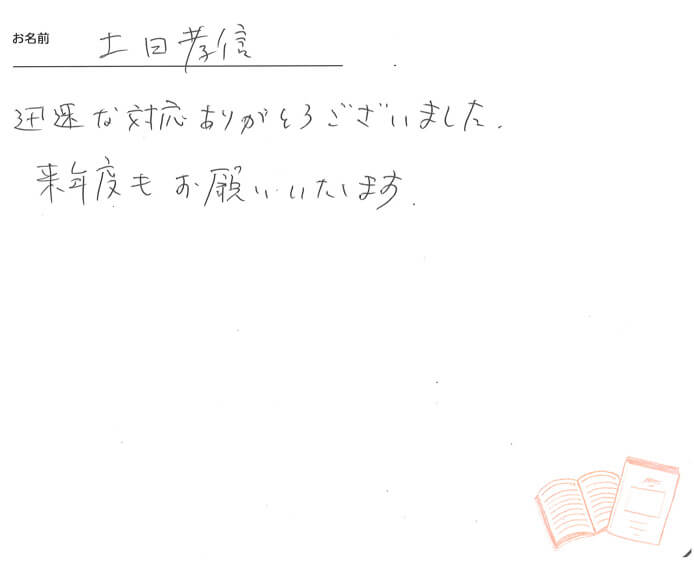 お名前 土田孝信
迅速な対応ありがとうございました.
来年度もお願いいたします.